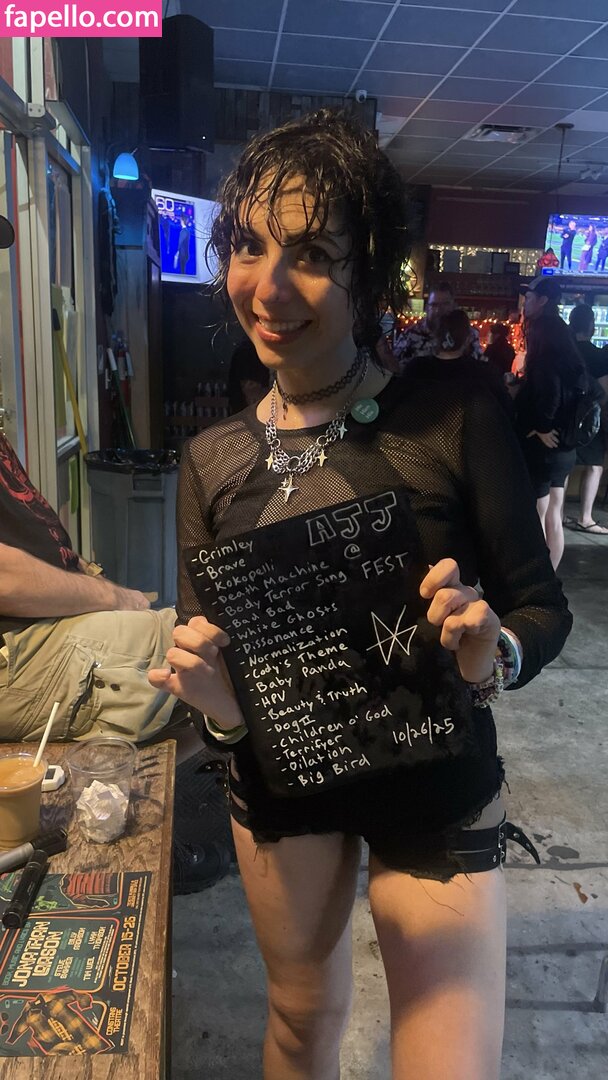 fapello.com
AJJ
@
FEST
-Grimley
-Brave
-Kokopelli
-Death Machine
-Body Terror Song
-Bad Bad
-White Ghosts
-Dissonance
-Normalization
-Cody's Theme
-Baby Panda
-HPV
-Beauty & Truth
-Dog II
-Children o' God
-Terrifyer
-Dilation
-Big Bird
10/26/25
JONATHAN
LARSON
OCTOBER 15-26